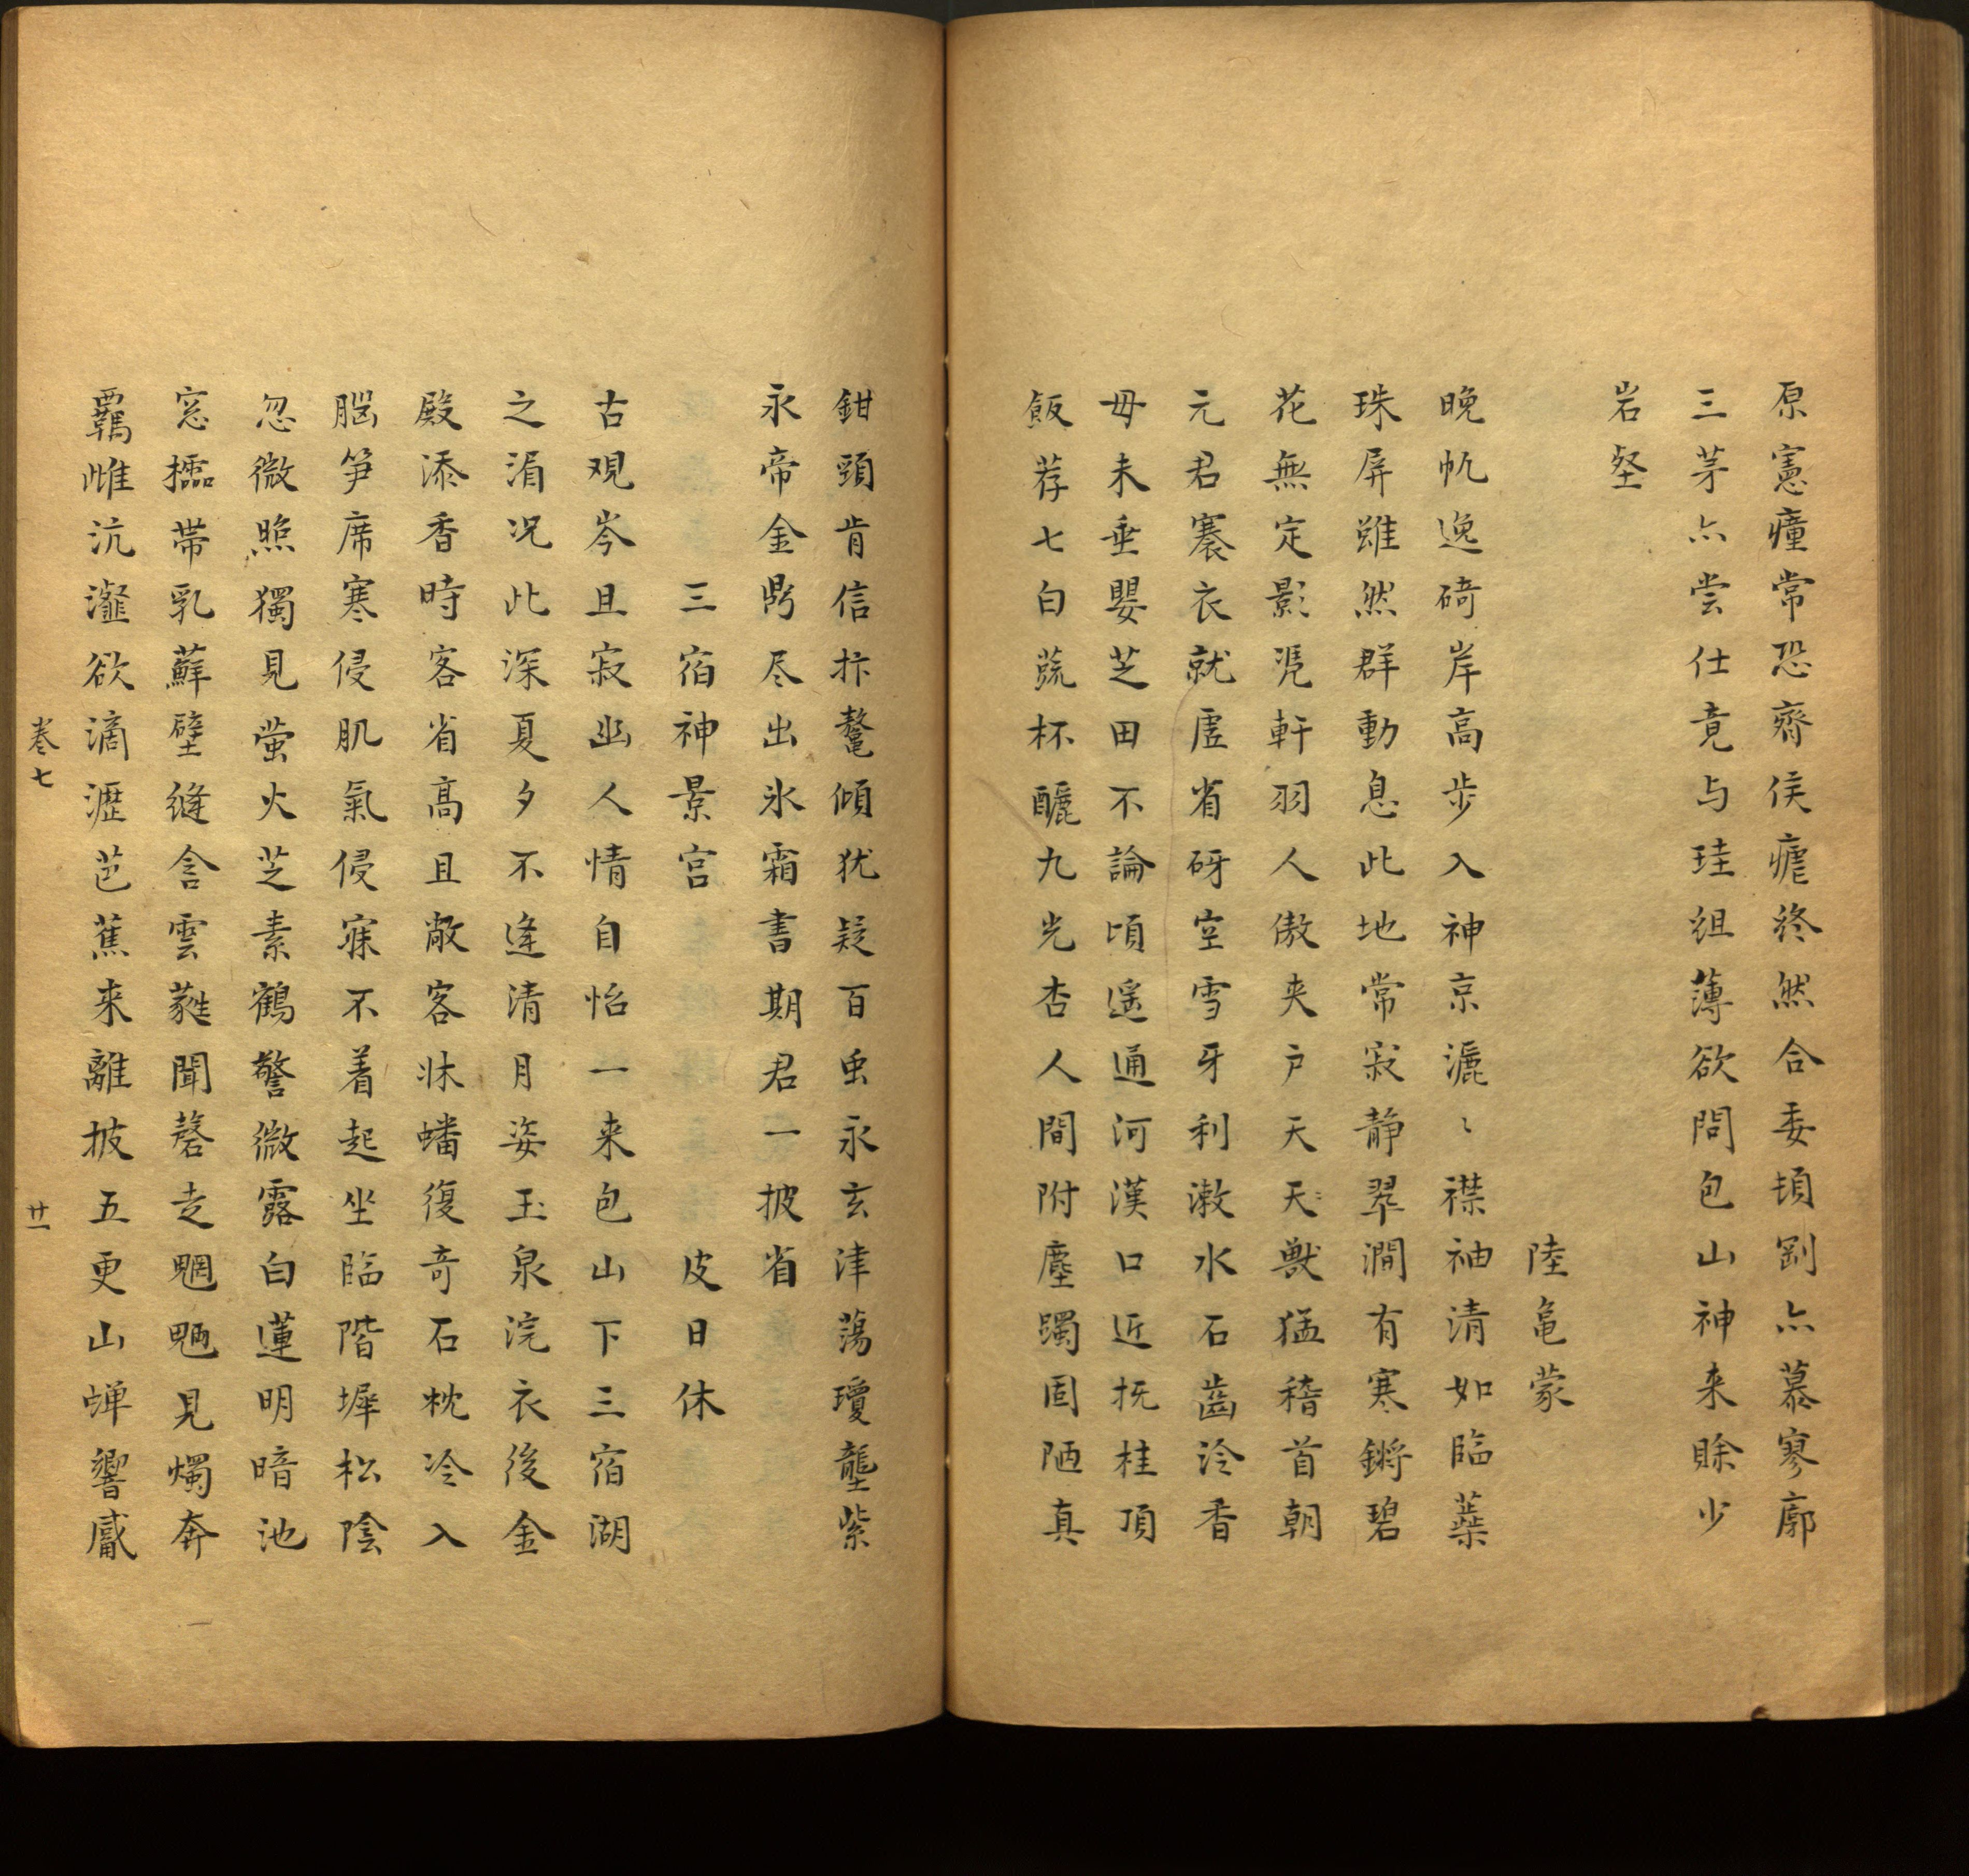 原憲瘇常恐齊侯瘧終然合委頓劉亦慕寥廓
三茅亦嘗仕竟与珪組薄欲問包山神来賒少
岩壑
陸亀蒙
晚帆逸碕岸高步入神京灑〻襟袖清如臨蘂
珠屏雖然群動息此地常寂静翠澗有寒鏘碧
花無定影凭軒羽人傲夹户天天獣猛稽首朝
元君褰衣就虛省砑空雪牙利漱水石齒冷香
母未垂嬰芝田不論頃遥通河漢口近抚桂頂
飯荐七白蔬杯醽九光杏人間附塵躅固陋真
鉗頭肯信抃鼇傾犹疑百虫永玄津蕩瓊壟紫
永帝金鼎尽出氷霜書期君一披省
三宿神景宫
皮日休
古观岑且寂幽人情自怡一来包山下三宿湖
之湄况此深夏夕不逢清月姿玉泉浣衣後金
殿添香時客省高且敞客牀蟠復奇石枕冷入
腦笋席寒侵肌氣侵寐不着起坐臨階墀松陰
忽微照獨見螢火芝素鶴警微露白蓮明暗池
窓櫺帯乳蘚壁縫含雲蕤聞磬走魍魎見燭奔
羈雌沆瀣欲滴瀝芭蕉来離披五更山蝉響感
卷七
廿一